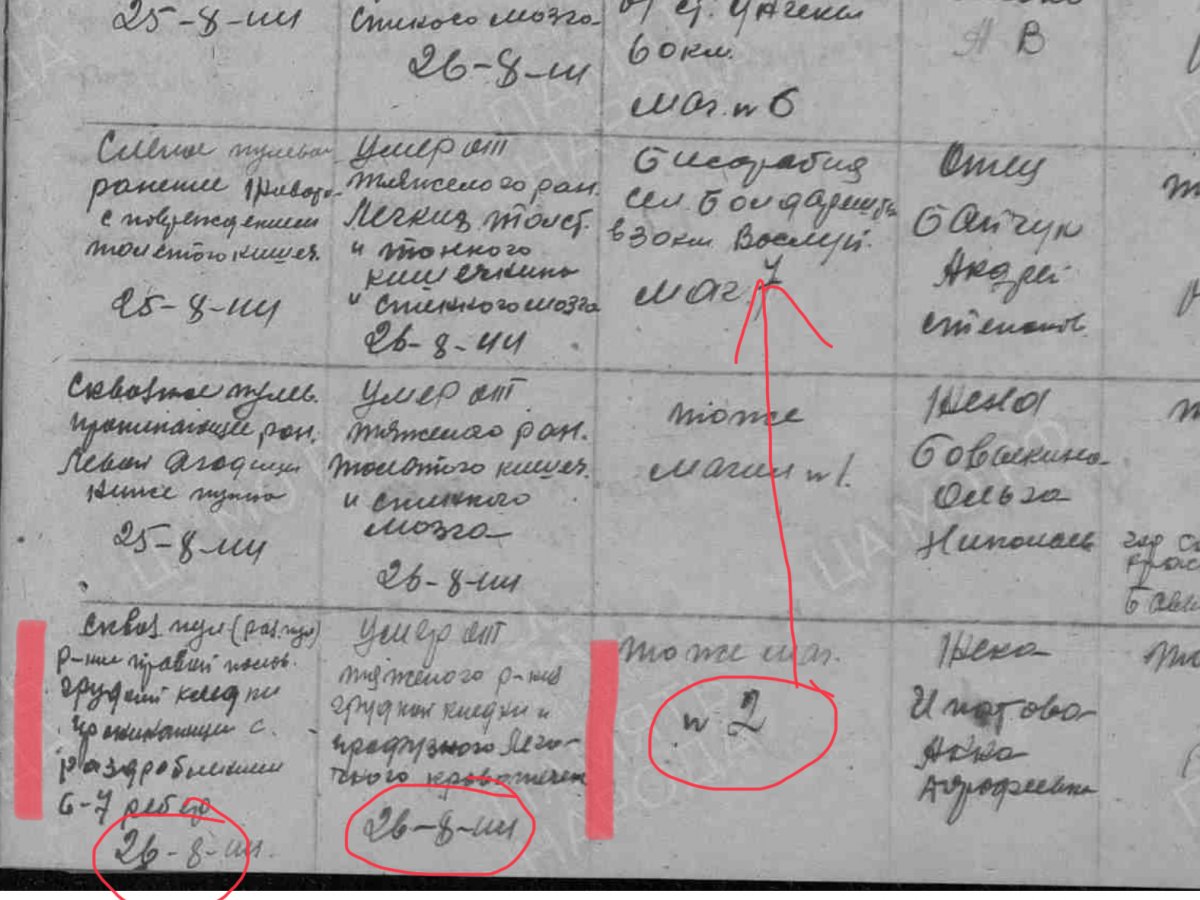 25-8-44
спинного мозга
26-8-44
60 км.
маг. № 6
Слепое пулевое
ранение живота
с повреждением
толстого кишеч.
25-8-44
Умер от
тяжелого ран.
толст.
и тонкого
кишечника
и спинного мозга
26-8-44
Бисарабия
сел.
в 30 км. Васлуй.
маг.
Отец
Байчук
Андрей
Степанов.
Сквозное пулев.
проникающее ран.
левой ягодицы
25-8-44
Умер от
тяжелого ран.
толстого кишеч.
и спинного
мозга
26-8-44
тоже
магил № 1.
Жена
Бовыкина
Ольга
Николаев
Сквоз пул (раз. пул)
р-ние правой полов.
грудной кледки
проникающее с
раздроблением
6-7 ребер
26-8-44.
Умер от
тяжелого р-ния
грудной кледки и
профузного Лего-
чного кровотечен
26-8-44
тоже маг.
№ 2
Жена
Ипатова
Анна
Дорофеевна